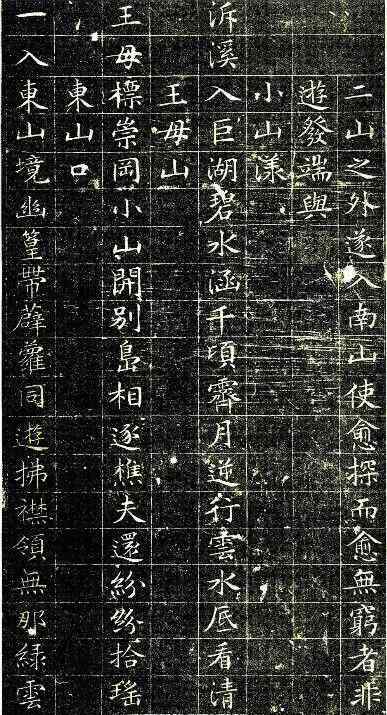 二山之外遂入南山使愈探而愈無窮者非
遊發端與
小山漾
泝溪入巨湖碧水涵千頃霽月逆行雲水底看清
王母山
王母標崇岡小山開別島相逐樵夫還紛紛拾瑤
東山口
一入東山境幽篁帶薜蘿同遊拂襟領無那綠雲